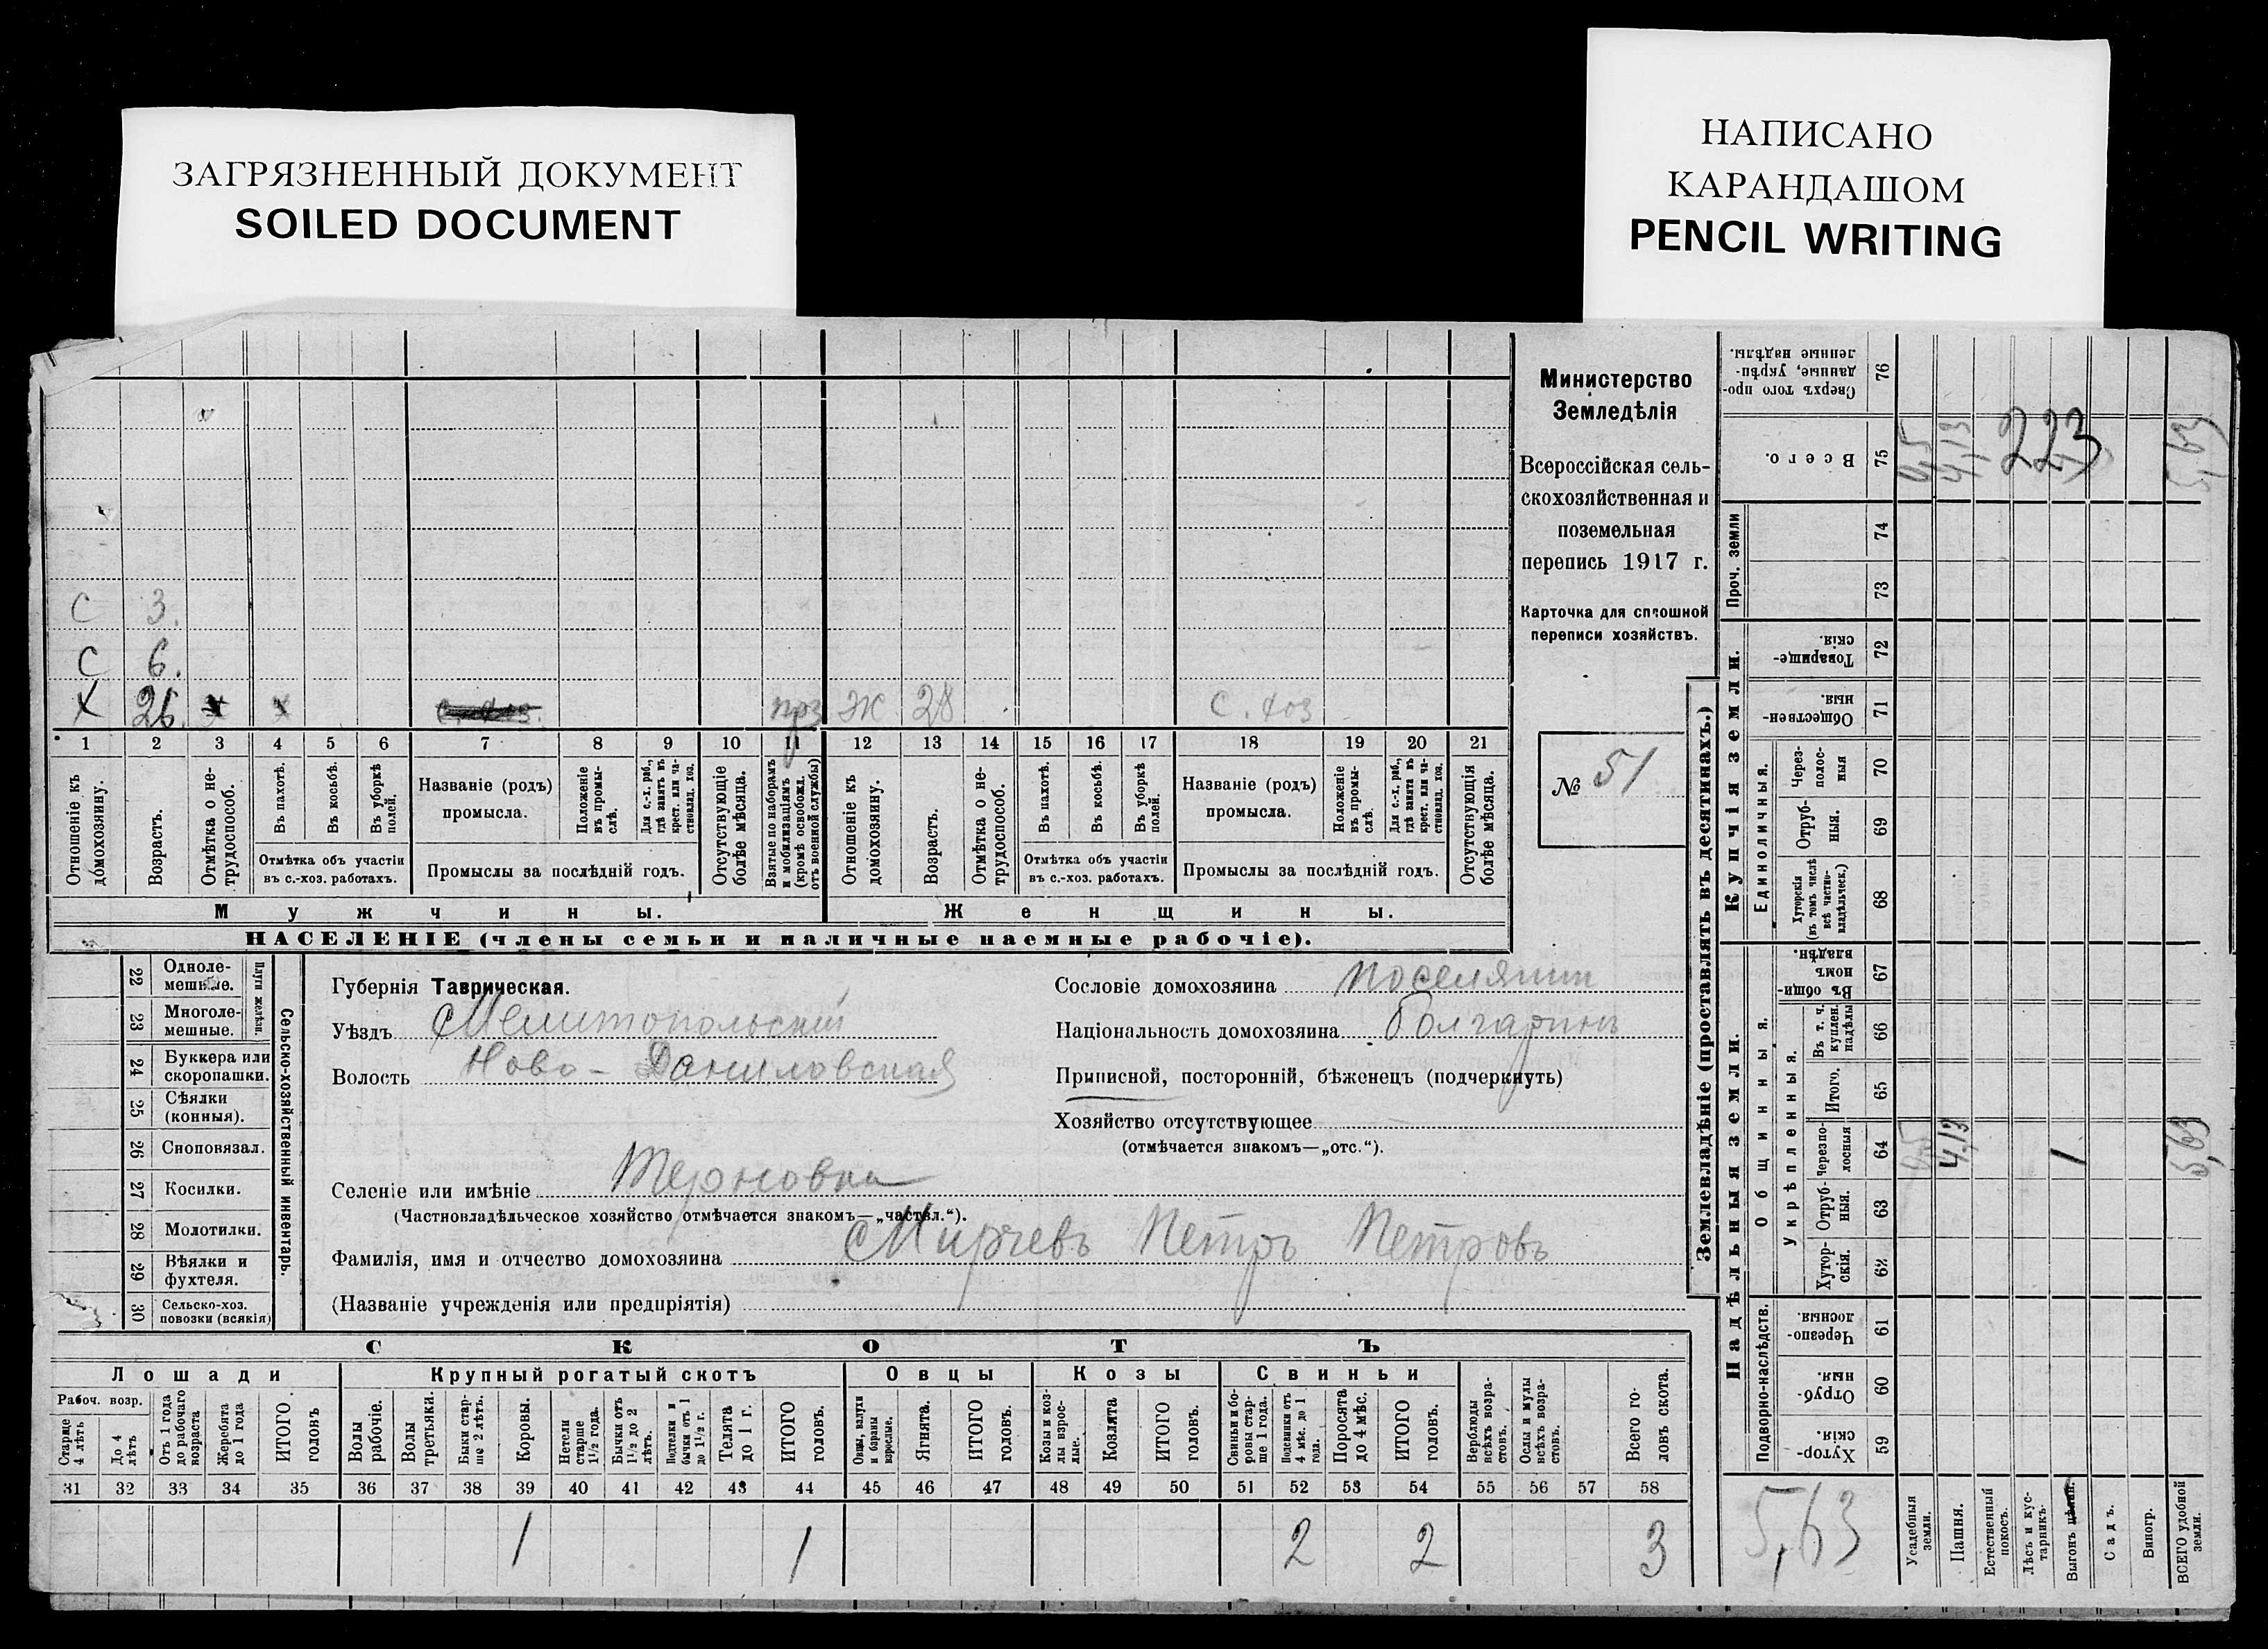 ЗАГРЯЗНЕННЫЙ ДОКУМЕНТ
SOILED DOCUMENT
НАПИСАНО
КАРАНДАШОМ
PENCIL WRITING
С 3.
С 6.
Х 26. х х с. хоз. прз ЖК 28 с. хоз
1 2 3 4 5 6 7 8 9 10 11 12 13 14 15 16 17 18 19 20 21
Отношеніе къ домохозяину.
Возрастъ.
Отмѣтка о не-трудоспособ.
Въ пахотѣ.
Въ косьбѣ.
Въ уборкѣ полей.
Отмѣтка объ участіи
въ с.-хоз. работахъ.
Названіе (родъ)
промысла.
Положеніе въ промы-слѣ.
Для с.-х. раб., гдѣ занятъ въ крест. или ча-стновлад. хоз.
Промыслы за послѣдній годъ.
Отсутствующіе болѣе мѣсяца.
Взятые по наборамъ и мобилизаціямъ (кромѣ освобожд. отъ военной службы)
Отношеніе къ домохозяину.
Возрастъ.
Отмѣтка о не-трудоспособ.
Въ пахотѣ.
Въ косьбѣ.
Въ уборкѣ полей.
Отмѣтка объ участіи
въ с.-хоз. работахъ.
Названіе (родъ)
промысла.
Положеніе въ промы-слѣ.
Для с.-х. раб., гдѣ занята въ крест. или ча-стновлад. хоз.
Промыслы за послѣдній годъ.
Отсутствующія болѣе мѣсяца.
Мужчины.
Женщины.
НАСЕЛЕНІЕ (члены семьи и наличные наемные рабочіе).
Министерство
Земледѣлія
Всероссійская сель-
скохозяйственная и
поземельная
перепись 1917 г.
Карточка для сплошной
переписи хозяйствъ.
№ 51
22 Одноле-мешные.
23 Многоле-мешные.
Плуги желѣзн.
24 Буккера или скоропашки.
25 Сѣялки (конныя).
26 Сноповязал.
27 Косилки.
28 Молотилки.
29 Вѣялки и фухтеля.
30 Сельско-хоз. повозки (всякія)
Сельско-хозяйственный инвентарь.
Губернія Таврическая.
Уѣздъ Мелитопольскій
Волость Ново-Даниловская
Сословіе домохозяина поселянин
Національность домохозяина болгаринъ
Приписной, посторонній, бѣженецъ (подчеркнуть)
Хозяйство отсутствующее
(отмѣчается знакомъ—„отс.“).
Селеніе или имѣніе Терновка
(Частновладѣльческое хозяйство отмѣчается знакомъ—„частвл.“).
Фамилія, имя и отчество домохозяина Мирчевъ Петръ Петровъ
(Названіе учрежденія или предпріятія)
СКОТЪ
Лошади
Крупный рогатый скотъ
Овцы
Козы
Свиньи
Рабоч. возр.
Старше 4 лѣтъ
До 4 лѣтъ
Отъ 1 года до рабочаго возраста
Жеребята до 1 года
ИТОГО головъ
Волы рабочіе.
Волы третьяки.
Быки стар-ше 2 лѣтъ.
Коровы.
Нетели старше 1½ года.
Бычки отъ 1½ до 2 лѣтъ.
Подтелки и бычки отъ 1 до 1½ г.
Телята до 1 г.
ИТОГО головъ.
Овцы, валухи и бараны взрослые.
Ягнята.
ИТОГО головъ.
Козы и коз-лы взрос-лые.
Козлята
ИТОГО головъ.
Свиньи и бо-ровы стар-ше 1 года.
Подсвинки отъ 4 мѣс. до 1 года.
Поросята до 4 мѣс.
ИТОГО головъ.
Верблюды всѣхъ возра-стовъ.
Ослы и мулы всѣхъ возра-стовъ.
Всего го-ловъ скота.
31 32 33 34 35 36 37 38 39 40 41 42 43 44 45 46 47 48 49 50 51 52 53 54 55 56 57 58
1 1 2 2 3
Землевладѣніе (проставлять въ десятинахъ.)
Сверхъ того про-данные, укрѣп-ленные надѣлы. 76
Всего. 75 4,13 223 5,63
Проч. земли
74
73
Купчія земли.
Товарище-скія. 72
Обществен-ныя. 71
Единоличныя.
Через-полос-ныя 70
Отруб-ныя. 69
Хуторскія (въ томъ числѣ всѣ частно-владѣльческ.) 68
Надѣльныя земли.
Общинныя.
Въ общин-номъ владѣн. 67
Укрѣпленныя.
Въ т. ч. куплен. надѣлы 66
Итого. 65
Черезпо-лосныя 64 4,13 1 5,63
Отруб-ныя. 63
Хутор-скія. 62
Подворно-наслѣдств.
Черезпо-лосныя. 61
Отруб-ныя. 60
Хутор-скія. 59
5,63
Усадебныя земли.
Пашня.
Естественный покосъ.
Лѣсъ и кус-тарникъ.
Выгонъ
Садъ.
Виногр.
ВСЕГО удобной земли.